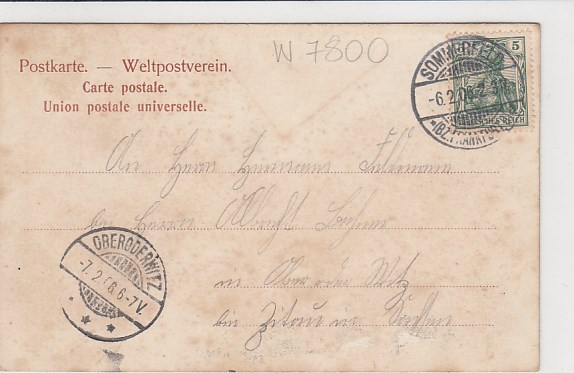 W 7800
Postkarte. — Weltpostverein.
Carte postale.
Union postale universelle.
SOMMERFELD
-6.2.06.
(BZ. FRANKFURT
5
REICH
An Herrn Hermann
bei Herrn Albrecht
in Oberoderwitz
bei Zittau in Sachsen
OBERODERWITZ
-7.2.06.6-7V.